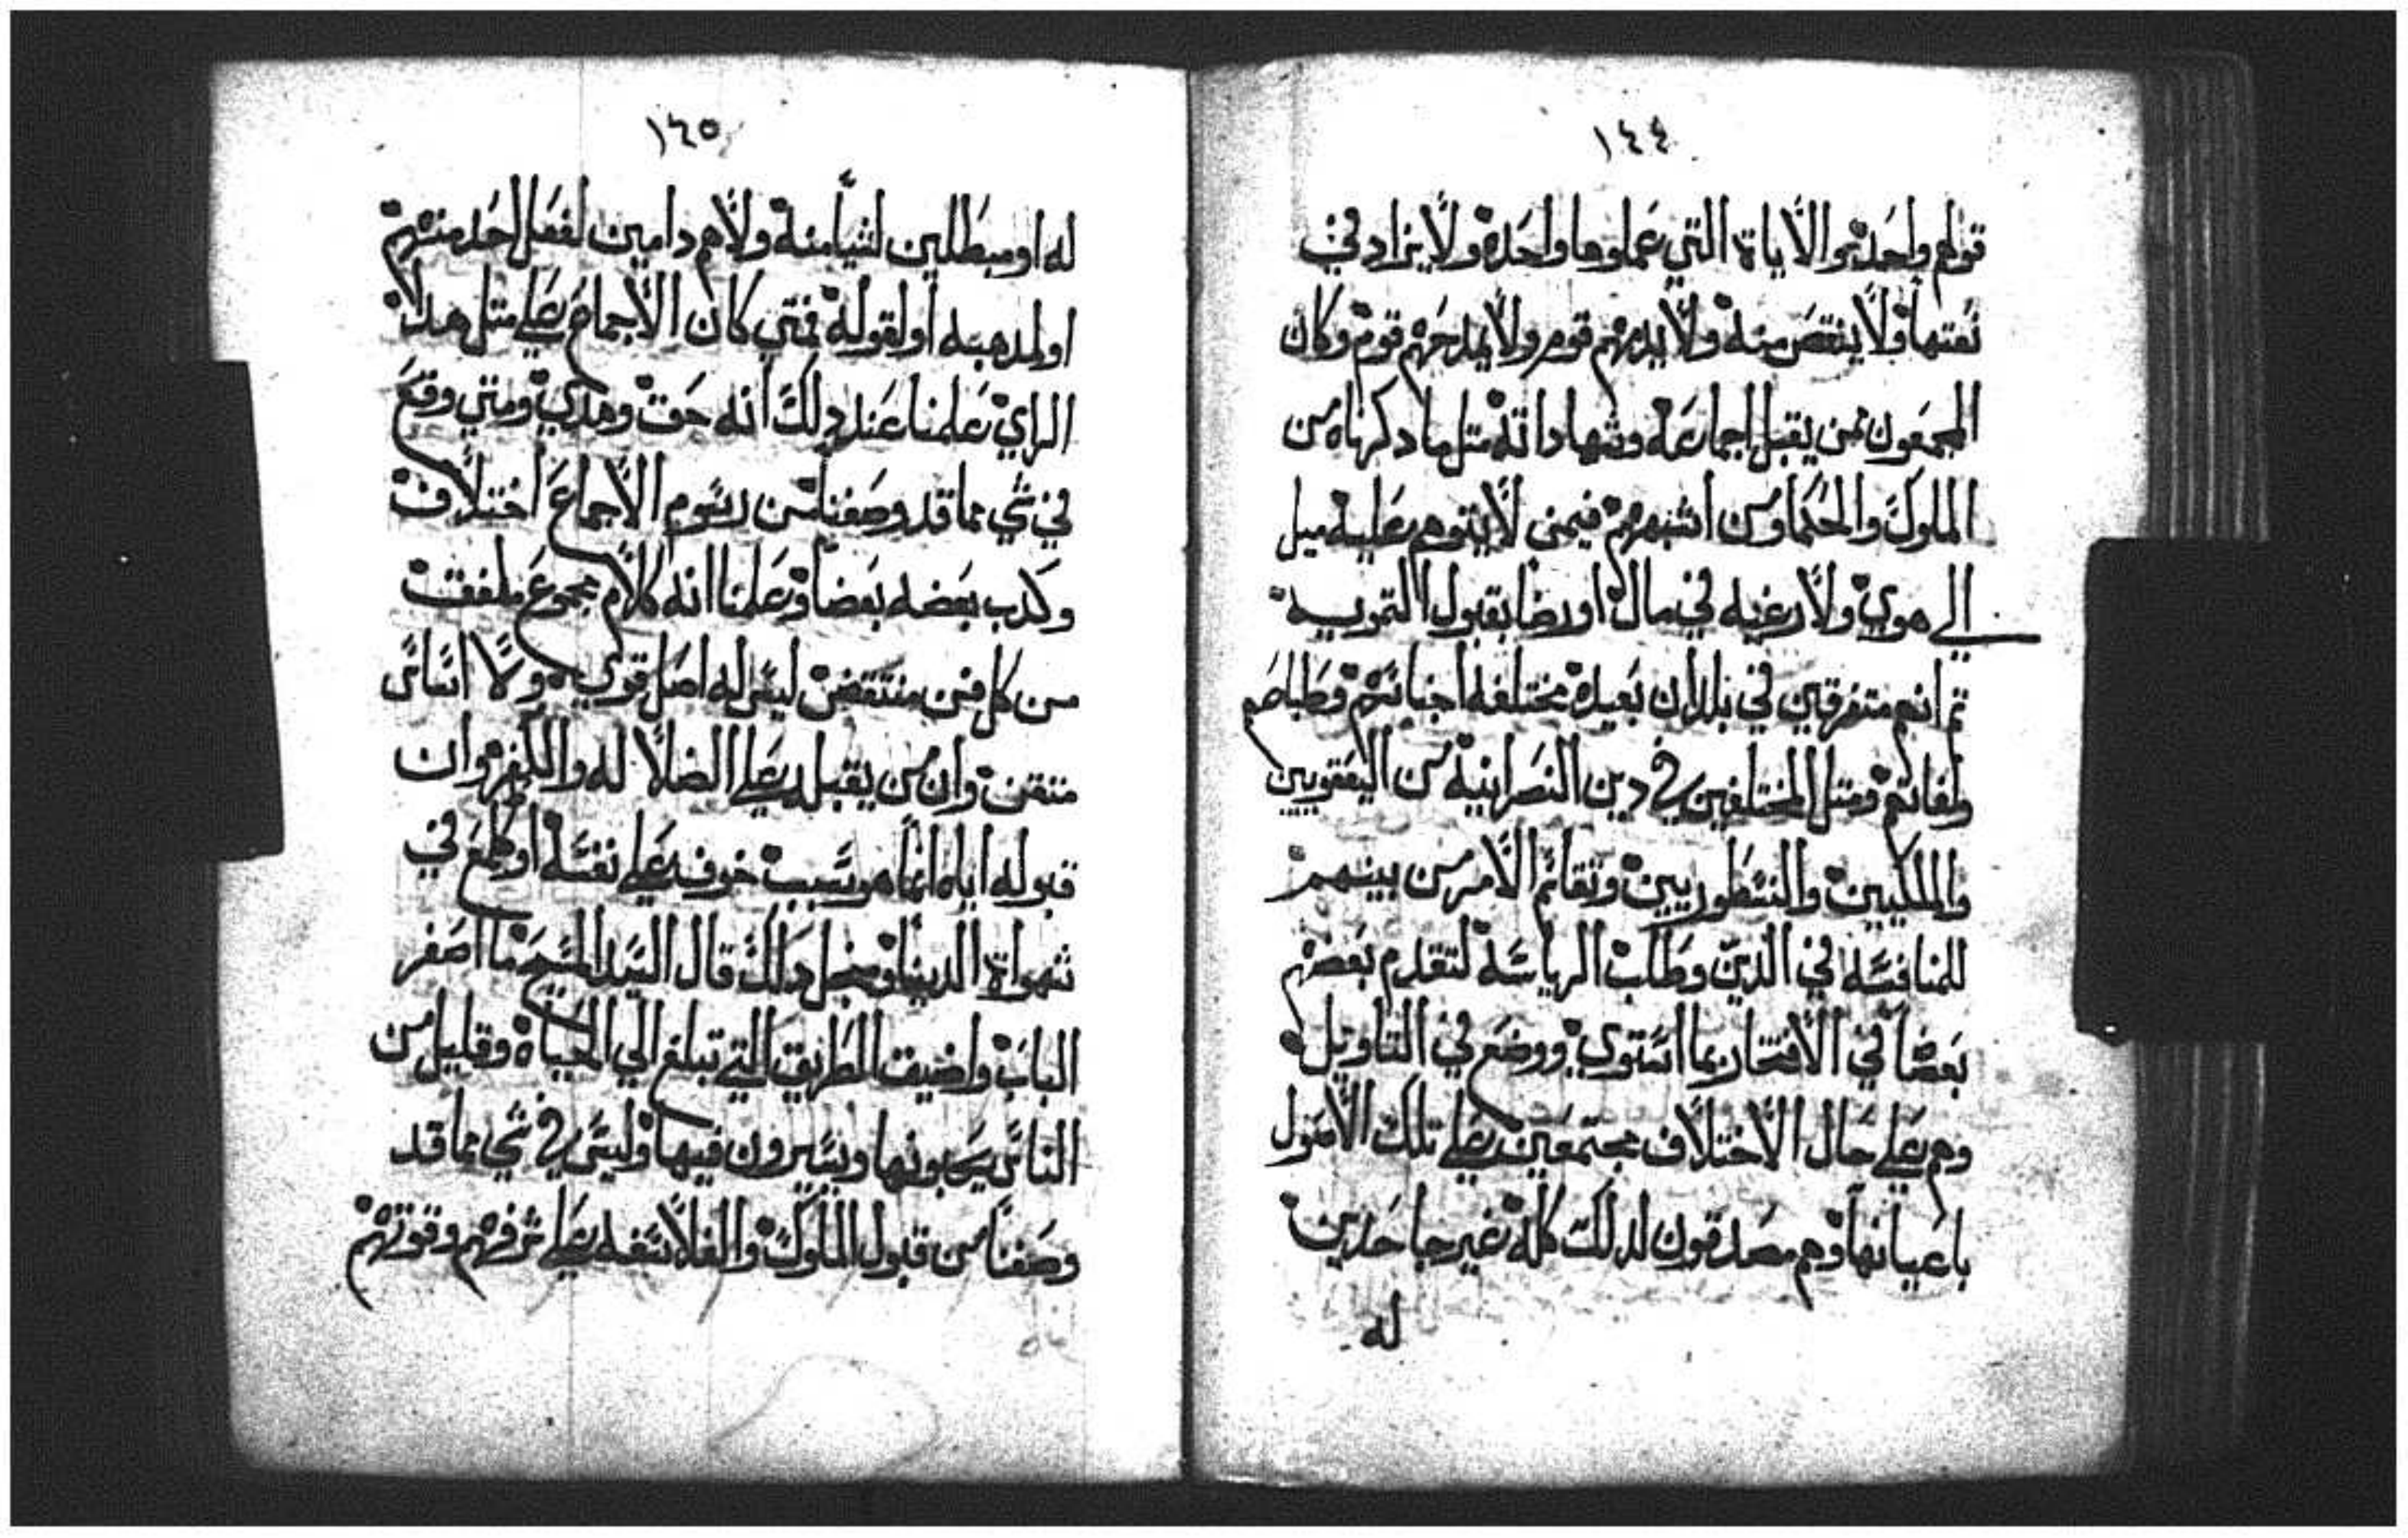 ١٤٤
قولهم واحد هو الاياة التي عملوها واحدة ولا يزاد في
نعتها ولا ينقص منه ولا يدمهم قوم ولا يمدحهم قوم وكان
المجمعون ممن يقبل اجماعه وشهاداته مثل ما دكرناه من
الملوك والحكما ومن اشبههم فيمن لا يتوهم عليه ميل
الي هوي ولا رغبه في مال او رضا بقبول التمويه
ثم انهم متفرقين في بلدان بعيدة مختلفه اجناسهم وطباعهم
ولغاتهم ومتل المختلفين في دين النصرانيه من اليعقوبيين
والملكيين والنسطوريين وتفاقم الامر من بينهم
للمنافسه في الدين وطلب الرياسه لتقدم بعضهم
بعضا في الافتخار بما استوي ووضع في التاويل
وهم علي حال الاختلاف مجتمعين علي تلك الامول
باعيانها وهم مصدقون لدلك كله غير جاحدين
له
١٤٥
له او مبطلين لشيا منه ولا هم دامين لفعل احد منهم
او لمدهبه او لقوله فمتي كان الاجماع علي متل هدا
الراي علمنا عند دلك انه حق وهدي ومتي وقع
في شي مما قد وصفنا من رسوم الاجماع اختلاف
وكدب بعضه بعضا وعلمنا انه كلام مجموع ملفق
من كل فن منتقض ليس له اصل قوي ولا اساس
متقن وان من يقبله علي الضلاله والكفر وان
قبوله اياه انما هو سبب خوفه علي نفسه او طمع في
شهواة الدنيا ومنجل دلك قال السيد المسيح ما اصغر
الباب واضيق الطريق التي تبلغ الي الحياة وقليل من
الناس يحبونها ويسيرون فيها وليس في شي مما قد
وصفنا من قبول الملوك والفلاسفه علي شرفهم وقوتهم